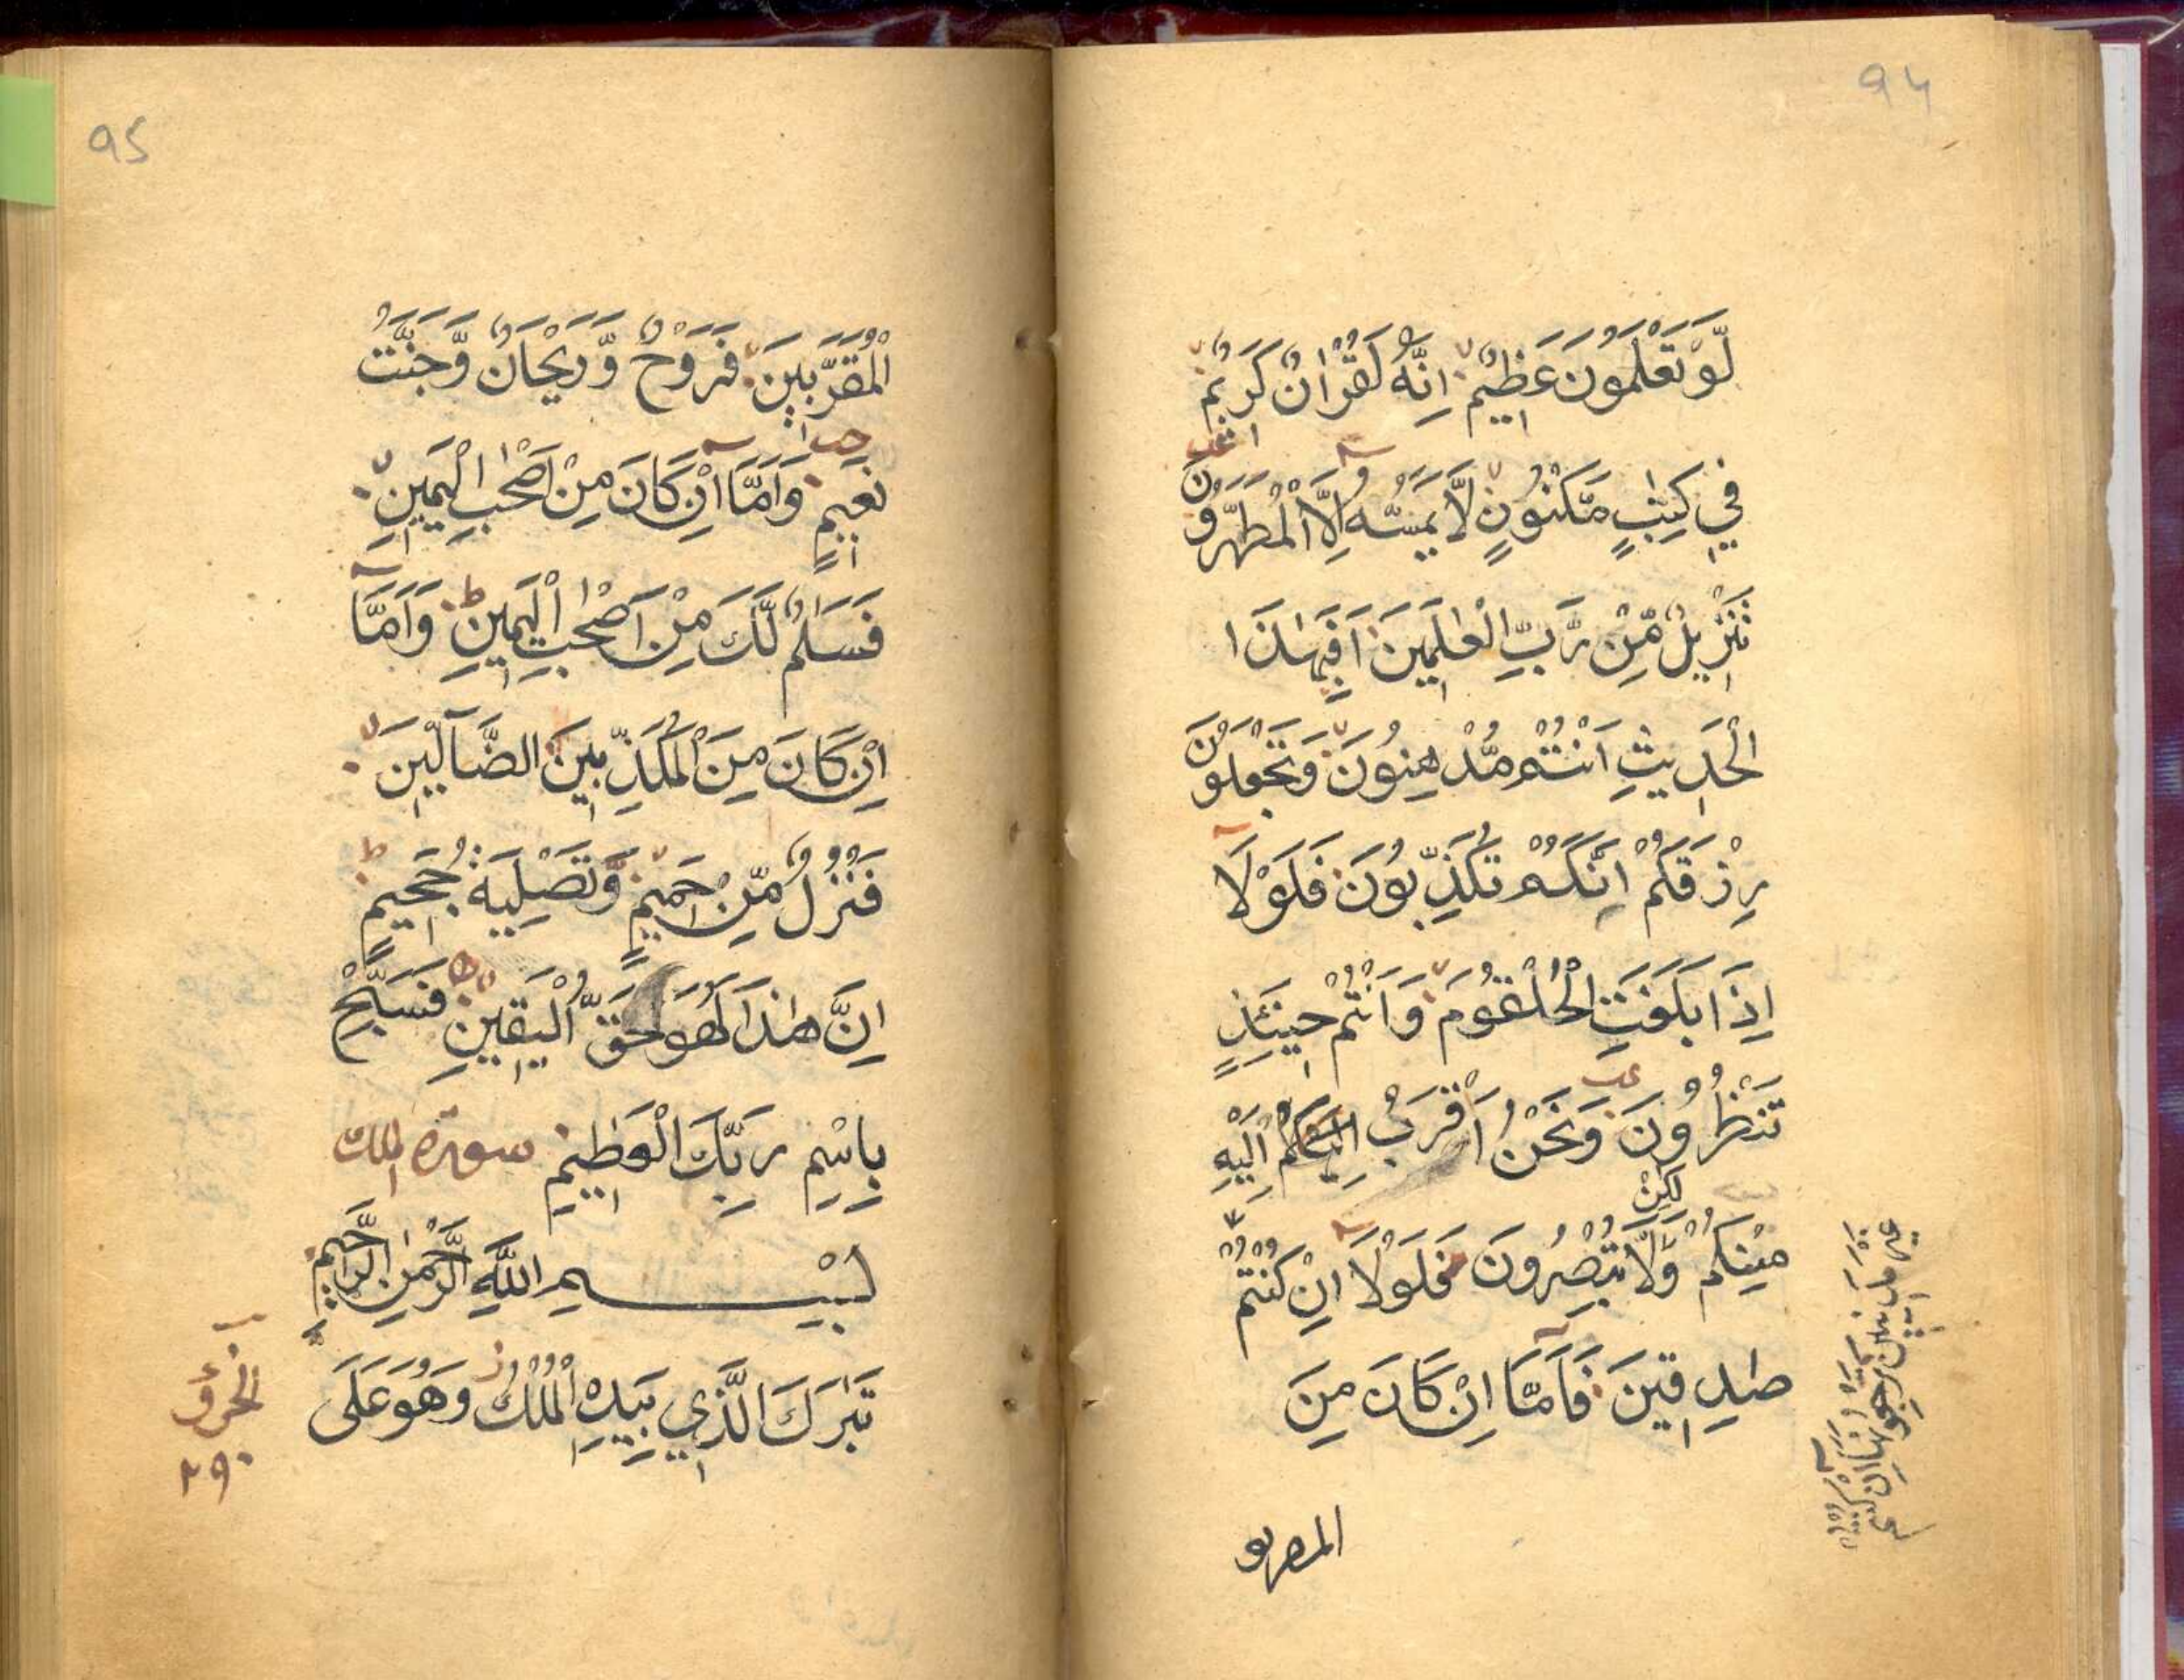 94
لَّوْ تَعْلَمُونَ عَظِيْمٌ اِنَّهٗ لَقُرْاٰنٌ كَرِيْمٌ
فِيْ كِتٰبٍ مَّكْنُوْنٍ لَّا يَمَسُّهٗ اِلَّا الْمُطَهَّرُوْنَ
تَنْزِيْلٌ مِّنْ رَّبِّ الْعٰلَمِيْنَ اَفَبِهٰذَا
الْحَدِيْثِ اَنْتُمْ مُّدْهِنُوْنَ وَتَجْعَلُوْنَ
رِزْقَكُمْ اَنَّكُمْ تُكَذِّبُوْنَ فَلَوْلَا
اِذَا بَلَغَتِ الْحُلْقُوْمَ وَاَنْتُمْ حِيْنَئِذٍ
تَنْظُرُوْنَ وَنَحْنُ اَقْرَبُ اِلَيْهِ
مِنْكُمْ وَلٰكِنْ لَّا تُبْصِرُوْنَ فَلَوْلَا اِنْ كُنْتُمْ
غَيْرَ مَدِيْنِيْنَ تَرْجِعُوْنَهَا اِنْ كُنْتُمْ
صٰدِقِيْنَ فَاَمَّا اِنْ كَانَ مِنَ
المقربين
95
الْمُقَرَّبِيْنَ فَرَوْحٌ وَّرَيْحَانٌ وَّجَنَّتُ
نَعِيْمٍ وَاَمَّا اِنْ كَانَ مِنْ اَصْحٰبِ الْيَمِيْنِ
فَسَلٰمٌ لَّكَ مِنْ اَصْحٰبِ الْيَمِيْنِ وَاَمَّا
اِنْ كَانَ مِنَ الْمُكَذِّبِيْنَ الضَّآلِّيْنَ
فَنُزُلٌ مِّنْ حَمِيْمٍ وَّتَصْلِيَةُ جَحِيْمٍ
اِنَّ هٰذَا لَهُوَ حَقُّ الْيَقِيْنِ فَسَبِّحْ
بِاسْمِ رَبِّكَ الْعَظِيْمِ سورة الملك
بِسْمِ اللّٰهِ الرَّحْمٰنِ الرَّحِيْمِ
تَبٰرَكَ الَّذِيْ بِيَدِهِ الْمُلْكُ وَهُوَ عَلٰى